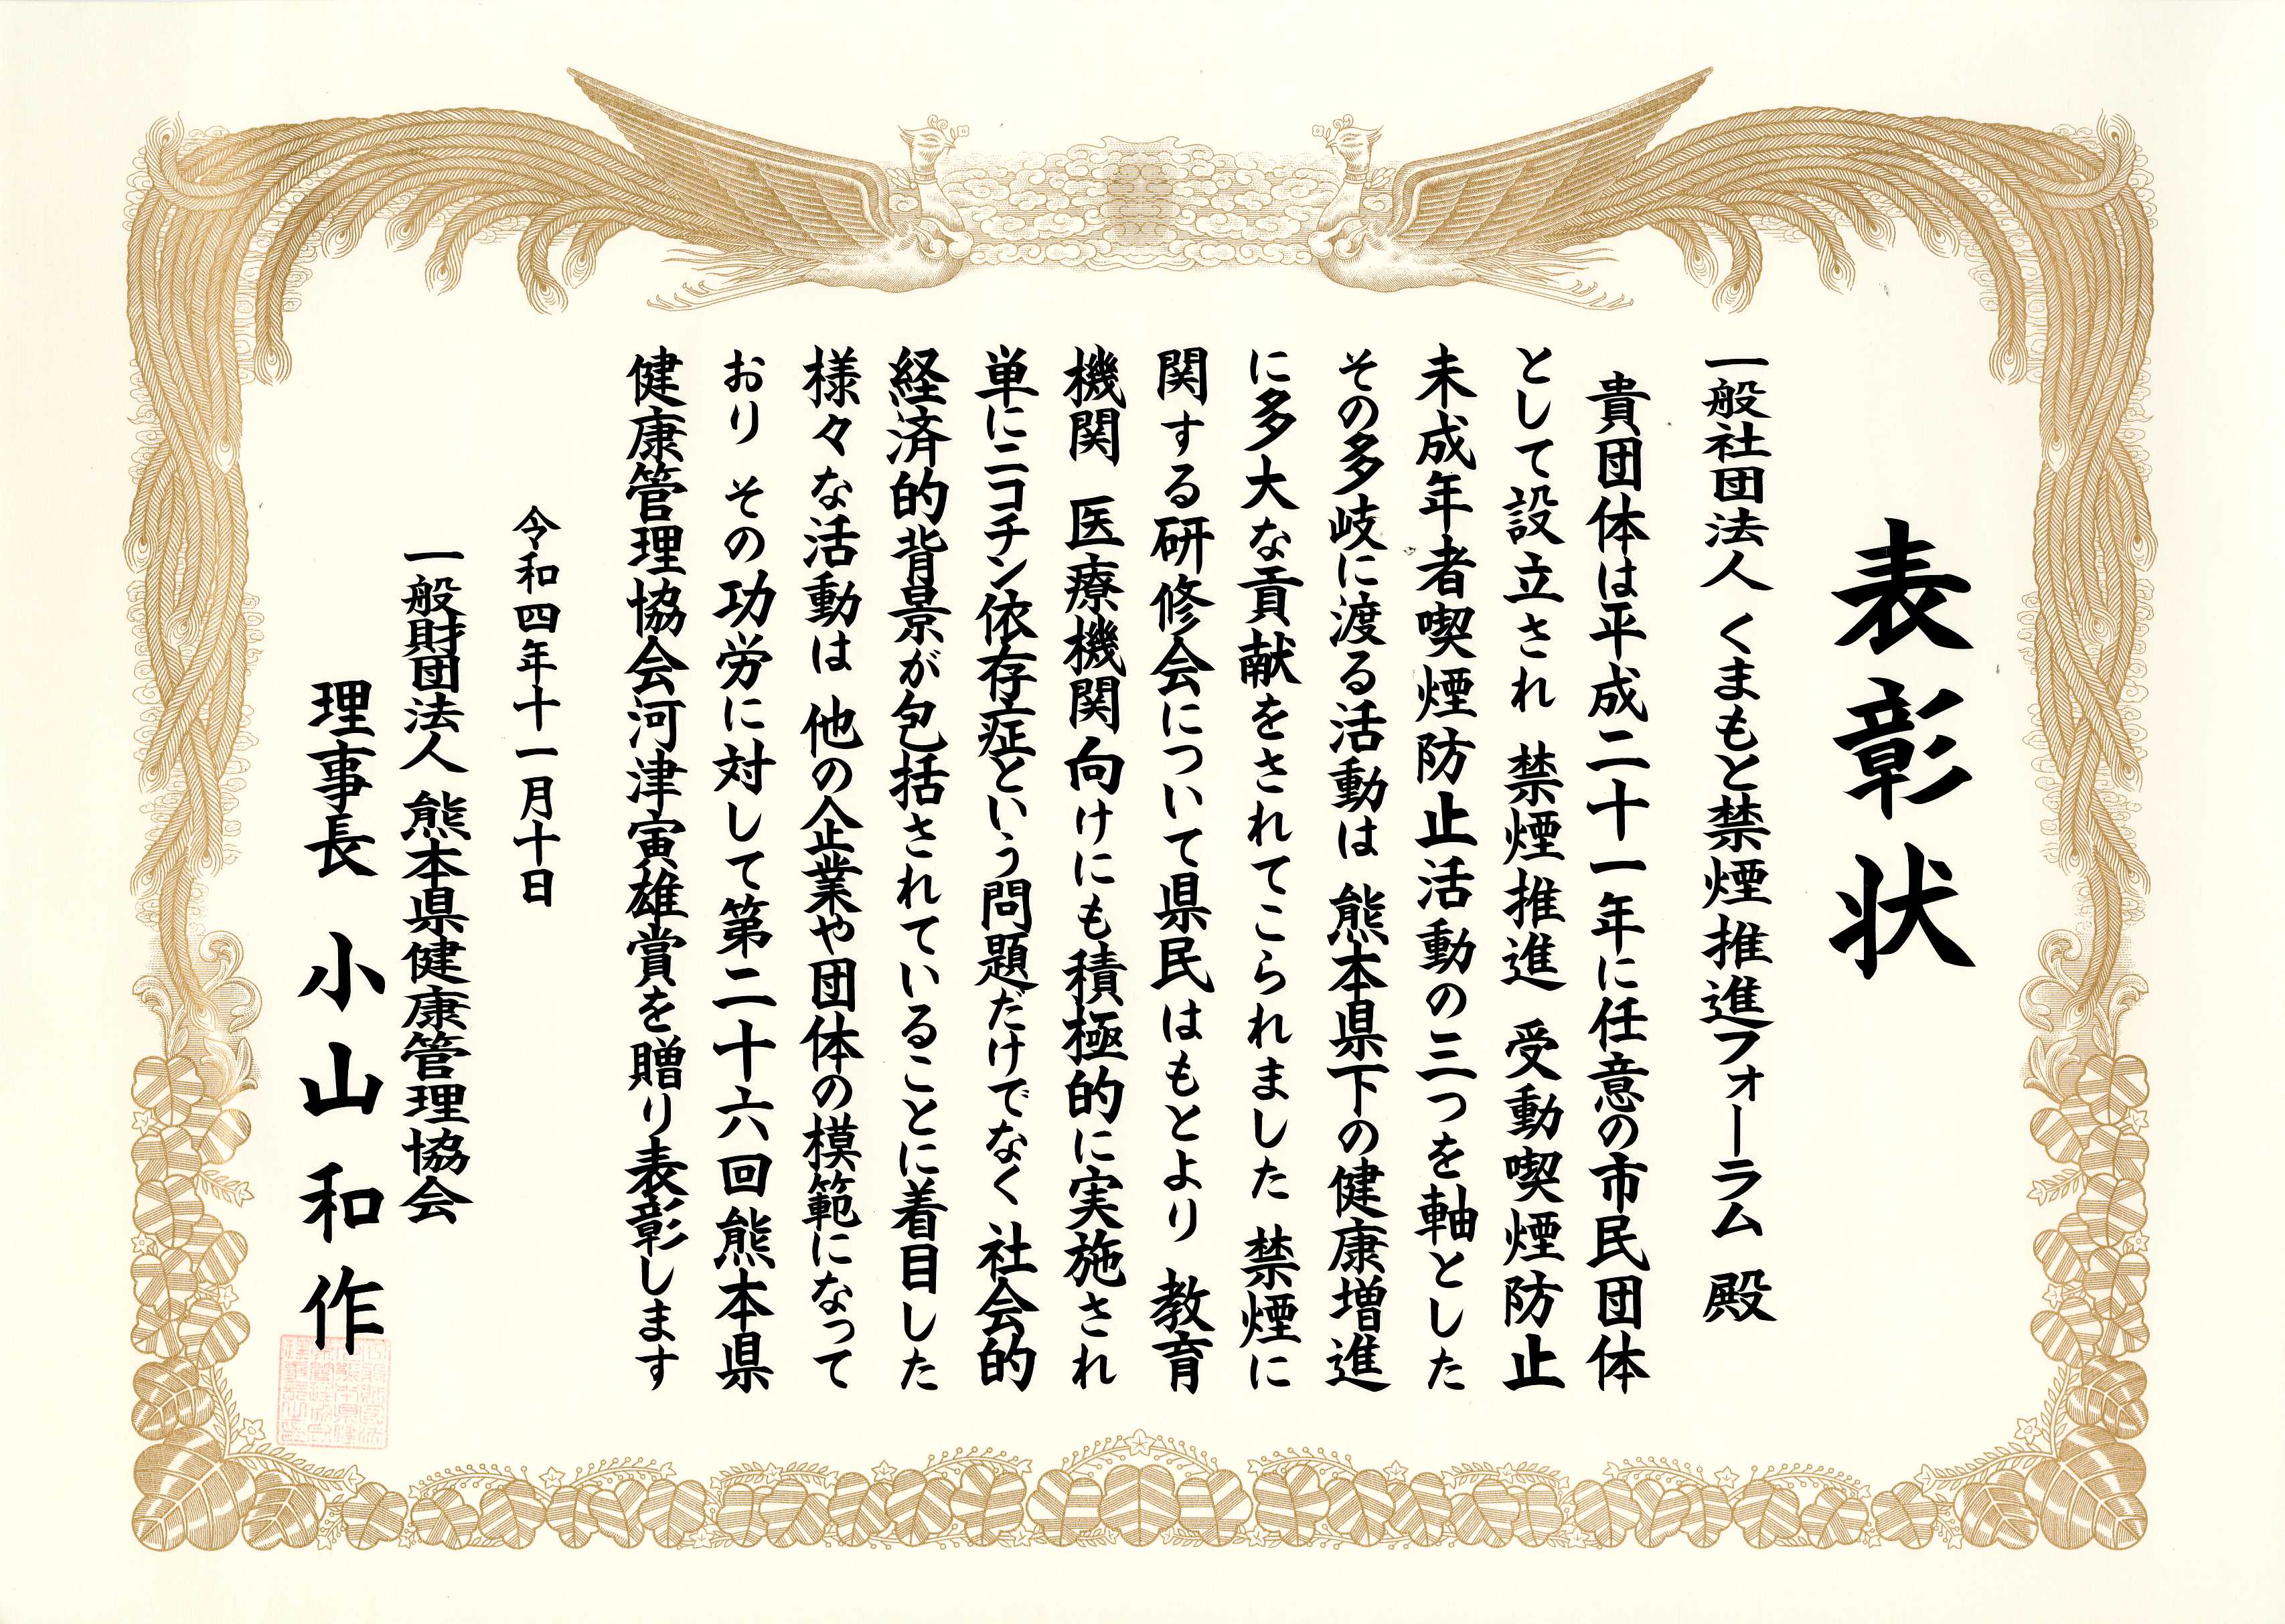 表彰状
一般社団法人 くまもと禁煙推進フォーラム 殿
貴団体は平成二十一年に任意の市民団体
として設立され 禁煙推進 受動喫煙防止
未成年者喫煙防止活動の三つを軸とした
その多岐に渡る活動は 熊本県下の健康増進
に多大な貢献をされてこられました 禁煙に
関する研修会について県民はもとより 教育
機関 医療機関向けにも積極的に実施され
単にニコチン依存症という問題だけでなく 社会的
経済的背景が包括されていることに着目した
様々な活動は 他の企業や団体の模範になって
おり その功労に対して第二十六回熊本県
健康管理協会河津寅雄賞を贈り表彰します
令和四年十一月十日
一般財団法人 熊本県健康管理協会
理事長 小山和作